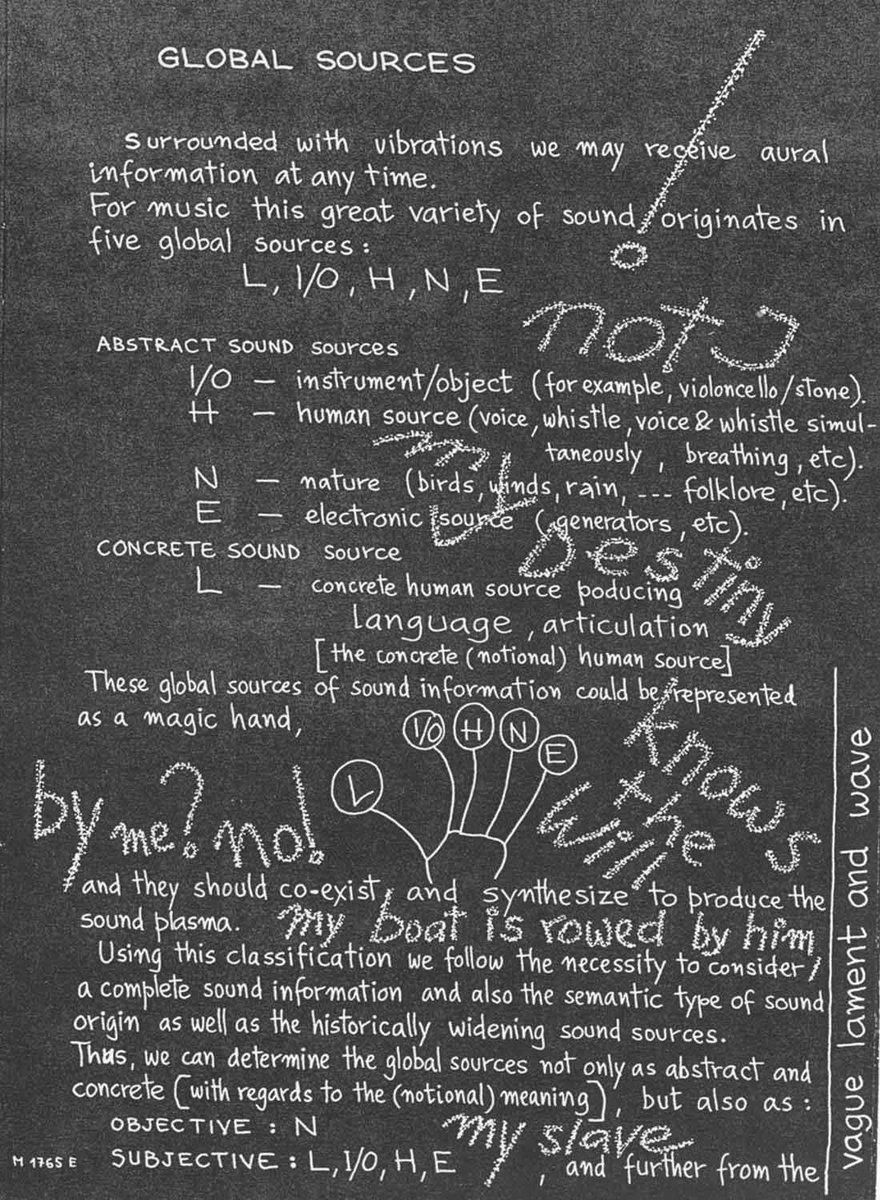 GLOBAL SOURCES
!
Surrounded with vibrations we may receive aural
information at any time.
For music this great variety of sound originates in
five global sources:
L, I/O, H, N, E
not I
ABSTRACT SOUND sources
I/O — instrument/object (for example, violoncello/stone).
H — human source (voice, whistle, voice & whistle simul-
taneously, breathing, etc).
my
N — nature (birds, winds, rain, --- folklore, etc).
E — electronic source (generators, etc).
CONCRETE SOUND source
Destiny
L — concrete human source poducing
language, articulation
[the concrete (notional) human source]
These global sources of sound information could be represented
as a magic hand,
L I/O H N E
knows
the
will
by me? no!
and they should co-exist, and synthesize to produce the
sound plasma.
my boat is rowed by him
Using this classification we follow the necessity to consider
a complete sound information and also the semantic type of sound
origin as well as the historically widening sound sources.
Thus, we can determine the global sources not only as abstract and
concrete [with regards to the (notional) meaning], but also as:
OBJECTIVE : N
my slave
SUBJECTIVE : L, I/O, H, E , and further from the
M 1765 E
vague lament and wave